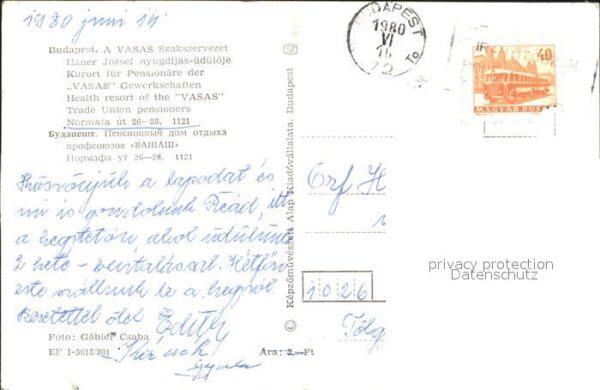 1980 juni 14
Budapest. A VASAS Szakszervezet
Háner József nyugdíjas-üdülője
Kurort für Pensionäre der
„VASAS" Gewerkschaften
Health resort of the "VASAS"
Trade Union pensioners
Normafa út 26—28. 1121
Будапешт. Пенсионный дом отдыха
профсоюзов «ВАШАШ»
Нормафа ут 26—28. 1121
Köszönjük a lapodat és
mi is gondolunk Reád, itt
a hegytetőn, ahol üdülünk
2 hete - beutalással. Hétfőn
este szállunk le a hegyről
Szeretettel ölel Edith
Foto: Gábler Csaba
EF I-5013/801
Ára: 3.—Ft
© Képzőművészeti Alap Kiadóvállalata, Budapest
BUDAPEST
1980
VI
16
40
MAGYAR POSTA
Orf. H
1026
Tölg
privacy protection
Datenschutz